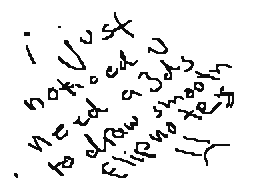 i Just
noticed U
need a 3ds
to draw smooth
Flipnotes